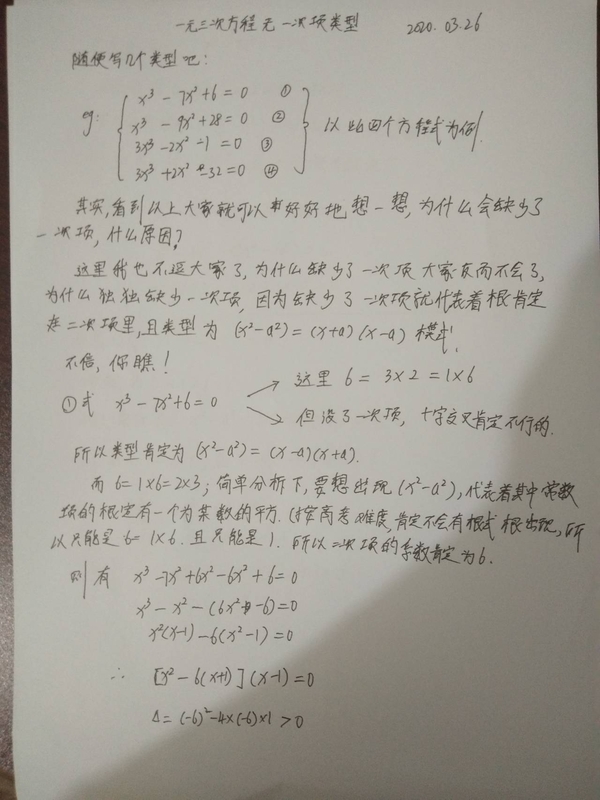 一元三次方程无一次项类型 2020.03.26
随便写几个类型吧:
eg: x³ - 7x² + 6 = 0 ①
x³ - 9x² + 28 = 0 ②
3x³ - 2x² - 1 = 0 ③
3x³ + 2x² - 32 = 0 ④
以此四个方程式为例.
其实,看到以上大家就可以好好地想一想,为什么会缺少了
一次项,什么原因?
这里我也不逗大家了,为什么缺少了一次项大家反而不会了,
为什么独独缺少一次项,因为缺少了一次项就代表着根肯定
在二次项里,且类型为 (x²-a²)=(x+a)(x-a) 模式!
不信,你瞧!
①式 x³ - 7x² + 6 = 0
这里 6 = 3×2 = 1×6
但没了一次项,十字交叉肯定不行的.
所以类型肯定为 (x²-a²)=(x-a)(x+a).
而 6=1×6=2×3; 简单分析下,要想出现(x²-a²),代表着其中常数
项的根定有一个为某数的平方.(按高考难度,肯定不会有根式根出现,所
以只能是 6=1×6. 且只能是1. 所以二次项的系数肯定为6.
则有 x³-7x²+6x²-6x²+6=0
x³ - x² - (6x² - 6)=0
x²(x-1) - 6(x²-1) = 0
∴ [x²-6(x+1)](x-1)=0
Δ=(-6)²-4×(-6)×1>0